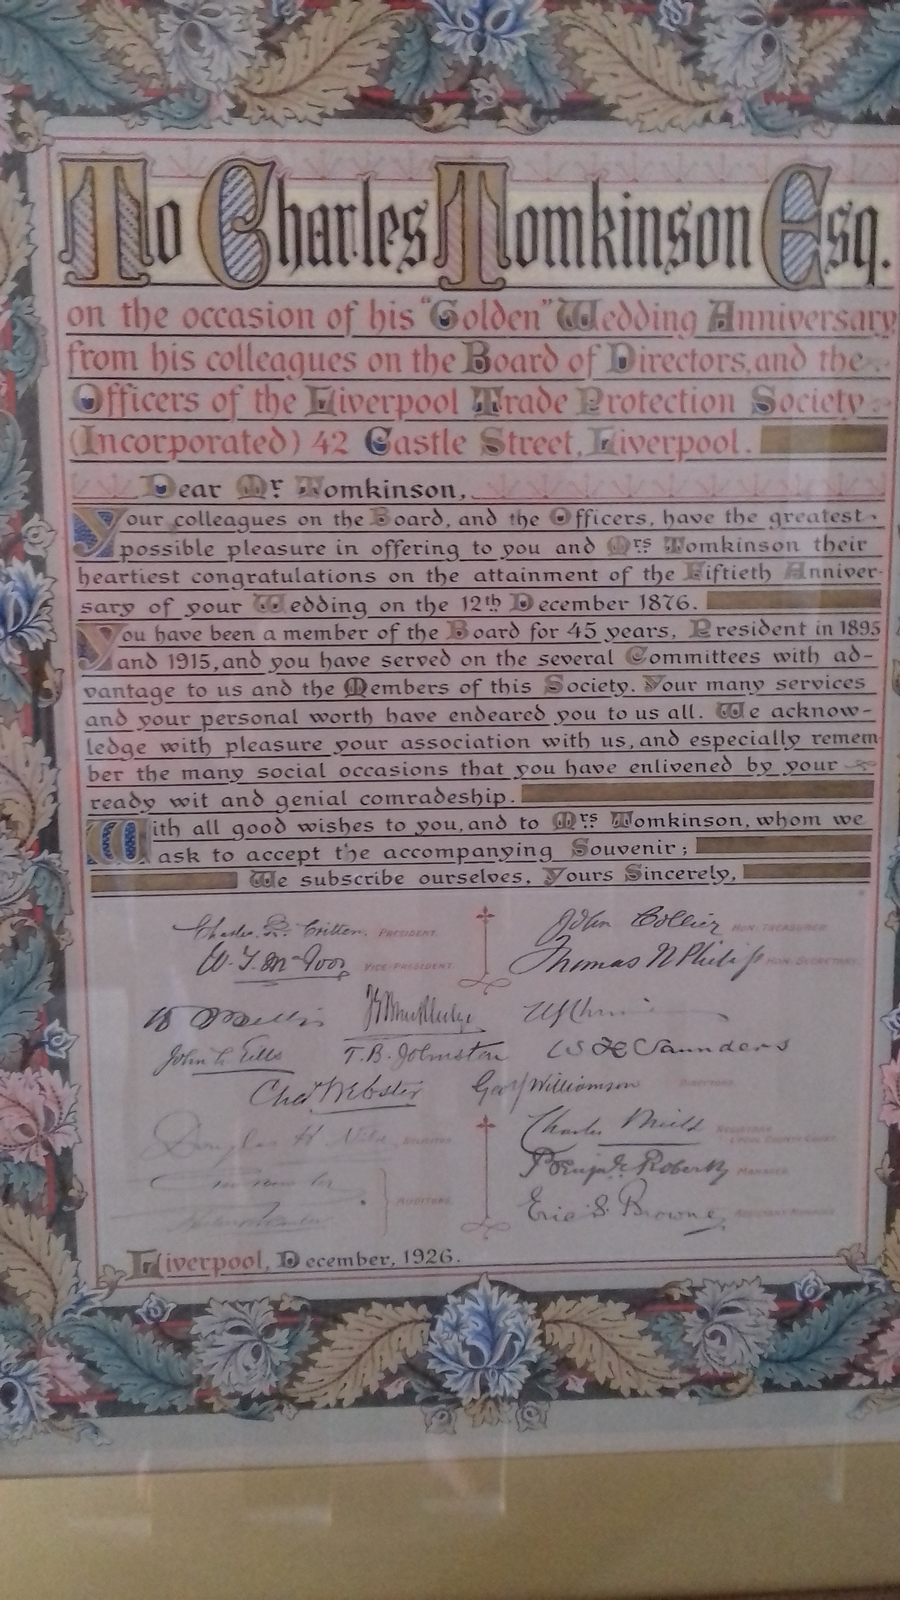 To Charles Tomkinson Esq.
on the occasion of his "Golden" Wedding Anniversary
from his colleagues on the Board of Directors, and the
Officers of the Liverpool Trade Protection Society
(Incorporated) 42 Castle Street, Liverpool.
Dear Mr Tomkinson,
Your colleagues on the Board, and the Officers, have the greatest
possible pleasure in offering to you and Mrs Tomkinson their
heartiest congratulations on the attainment of the Fiftieth Anniver-
sary of your Wedding on the 12th December 1876.
You have been a member of the Board for 45 years, President in 1895
and 1915, and you have served on the several Committees with ad-
vantage to us and the Members of this Society. Your many services
and your personal worth have endeared you to us all. We acknow-
ledge with pleasure your association with us, and especially remem
ber the many social occasions that you have enlivened by your
ready wit and genial comradeship.
With all good wishes to you, and to Mrs Tomkinson, whom we
ask to accept the accompanying Souvenir;
We subscribe ourselves, Yours Sincerely,
PRESIDENT
John Collier HON. TREASURER
VICE-PRESIDENT
Thomas N Philip HON. SECRETARY
John L Ells T.B. Johnston Saunders
Chas Webster Geo Williamson DIRECTORS
Douglas H SOLICITOR
Charles
Roberts MANAGER
AUDITORS
Eric S. Browne ASSISTANT MANAGER
Liverpool, December, 1926.